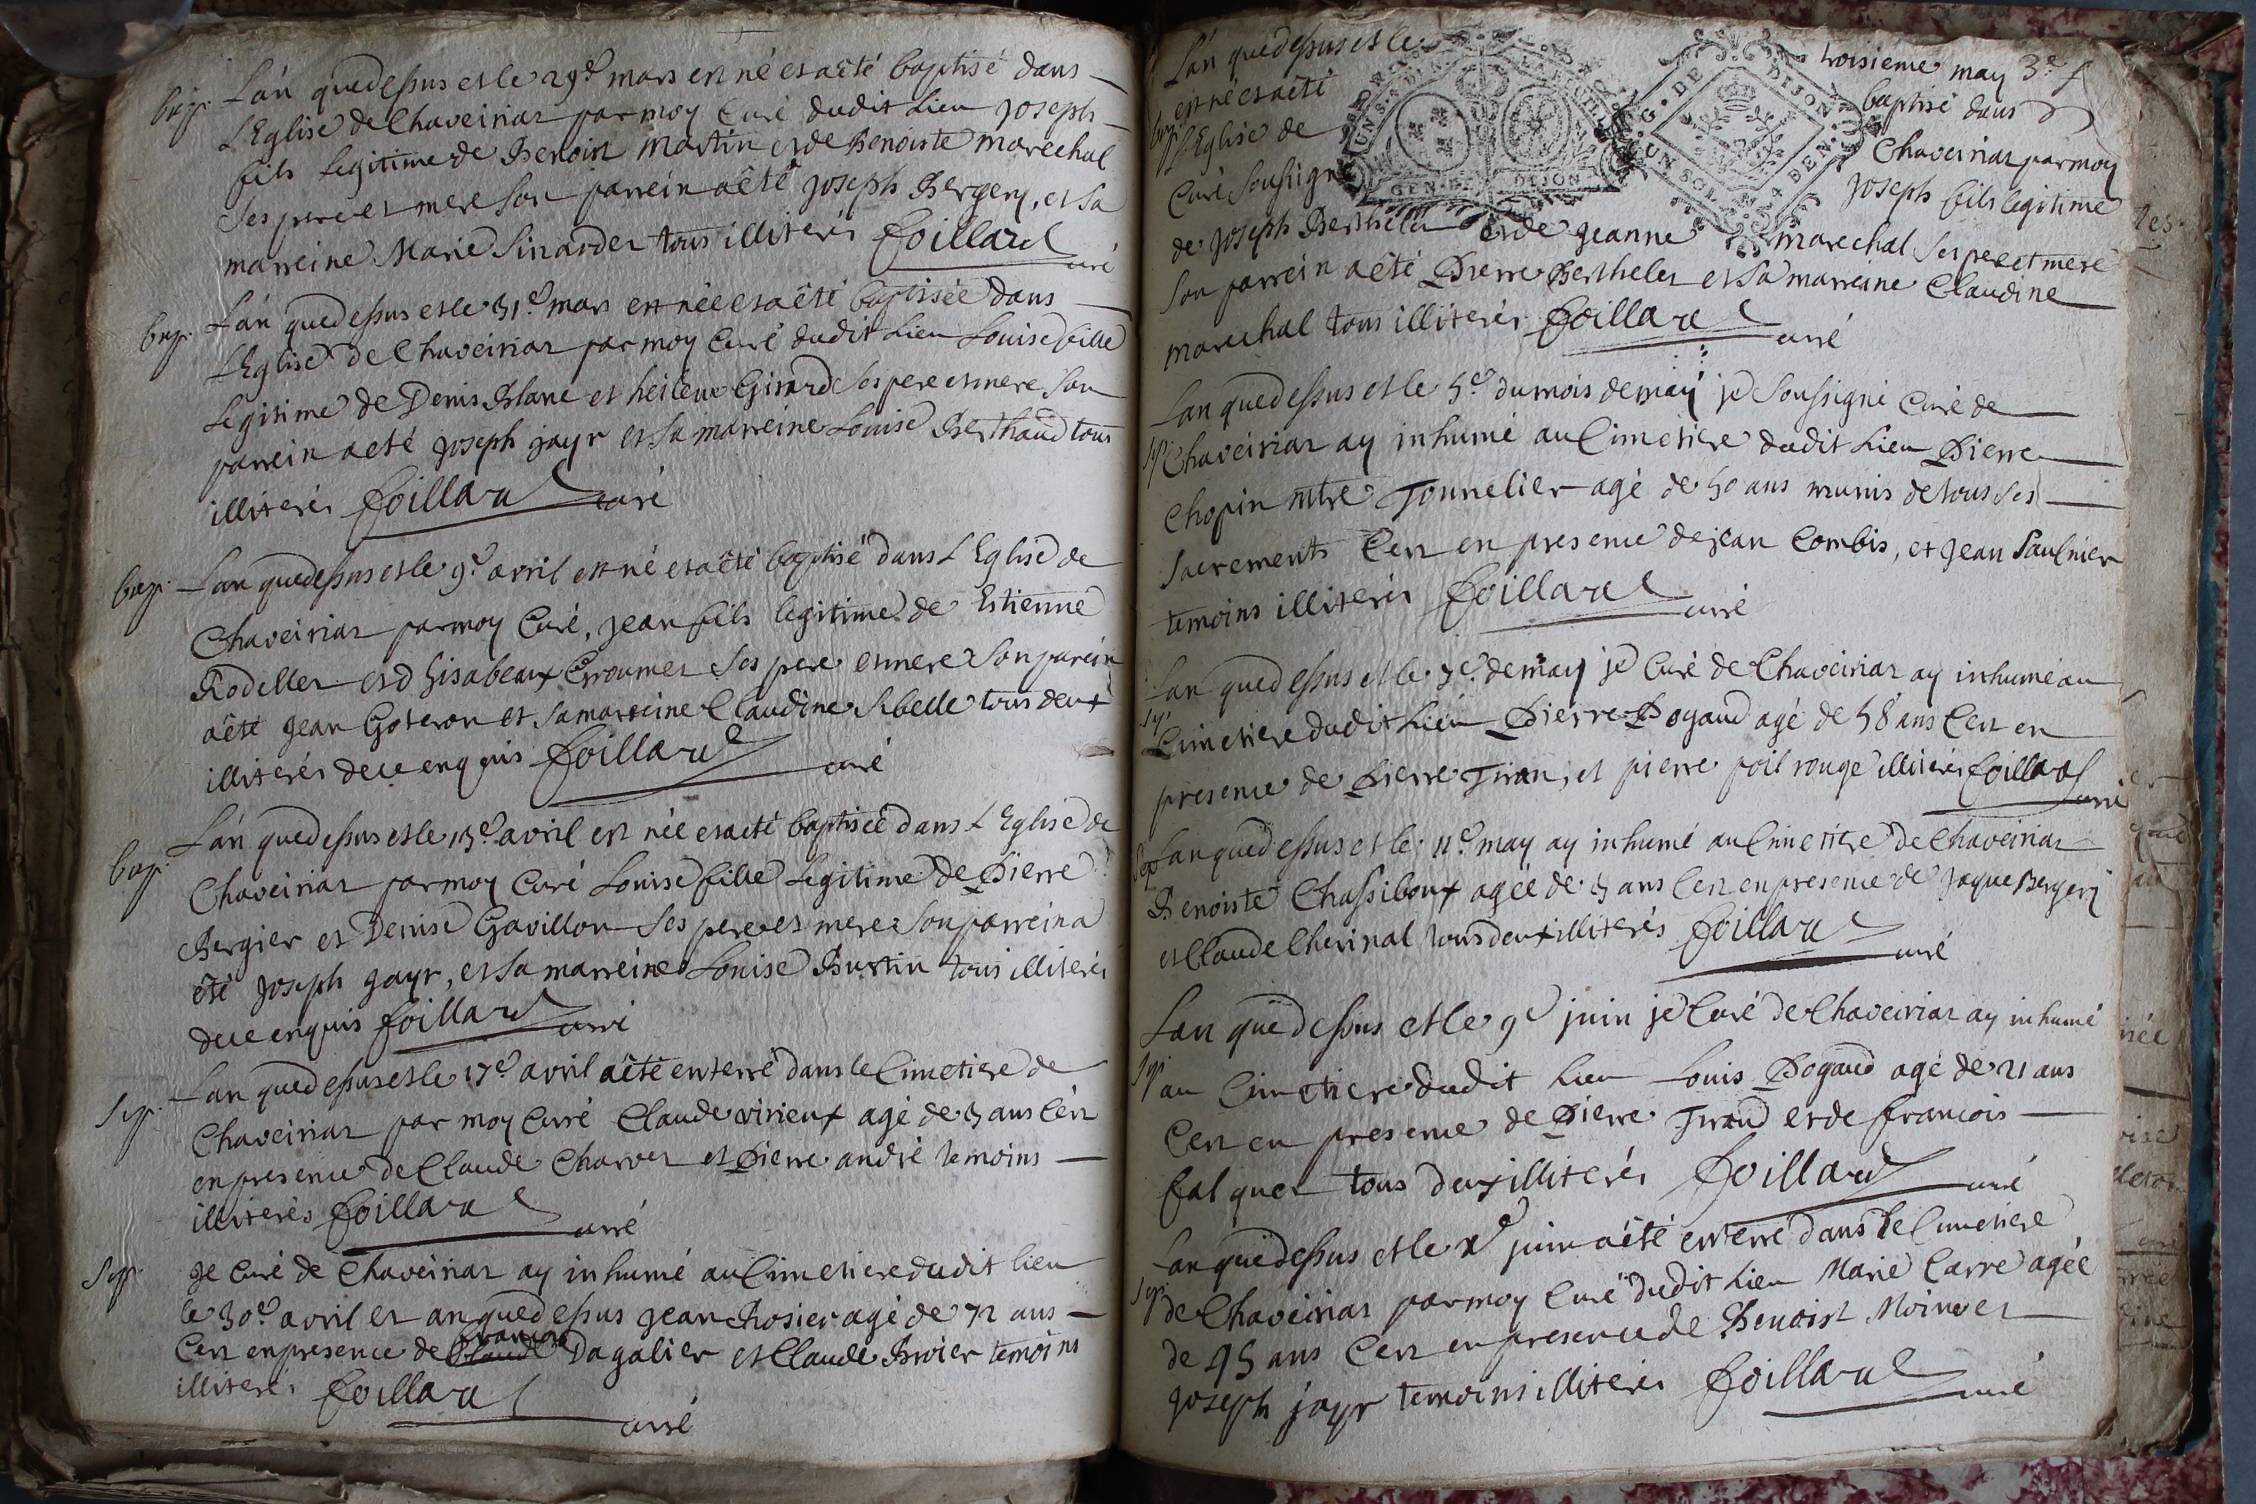 bap. L'an que dessus et le 29e mars est né et a été baptisé dans
L'Eglise de Chaveiriat par moy Curé dudit Lieu joseph
fils legitime de Benoist Martin et de Benoiste marechal
ses pere et mere son parrein a été joseph Bergery, et sa
marreine Marie Sirardet tous illiterés foillard
curé
bap. L'an que dessus et le 31e mars est née et a été baptisée dans
L'Eglise de Chaveiriat par moy Curé dudit Lieu Louise fille
Legitime de Denis Blanc et heilene Girard ses pere et mere son
parrein a eté joseph jayr et sa marreine Louise Berthaud tous
illiterés foillard curé
bap. L'an que dessus et le 9e avril est né et a été baptisé dans L'Eglise de
Chaveiriat par moy Curé, jean fils legitime de Estienne
Rodellet et d'hisabeaux ses pere et mere son parein
a été jean Goteron et sa marreine Claudine Sibelle tous deux
illiterés de ce enquis foillard curé
bap. L'an que dessus et le 13e avril est née et a eté baptisée dans L'Eglise de
Chaveiriat par moy Curé Louise fille Legitime de Pierre
Bergier et Denise Gavillon ses pere et mere son parrein a
été joseph jayr, et sa marreine Louise Burtin tous illiterés
de ce enquis foillard curé
sep. L'an que dessus et le 17e avril a été enterré dans le Cimetiere de
Chaveiriat par moy Curé Claude virieux agé de 3 ans C'est
en presence de Claude Charvet et Pierre andré temoins
illiterés foillard curé
sep. Je Curé de Chaveiriat ay inhumé au Cimetiere dudit lieu
le 30e avril et an que dessus jean Rosier agé de 72 ans
francois
C'est en presence de Claude Dagalier et Claude Brvier temoins
illiterés foillard
curé
L'an que dessus et le troisieme may 3e
bap. est né et a été baptisé dans
L'Eglise de Chaveiriat par moy
Curé soussigné joseph fils legitime
UN SOL 4 DEN.
G. DE DIJON
GEN. DE DIJON
de joseph Berthelet et de jeanne marechal ses pere et mere
son parrein a été Pierre Berthelet et sa marreine Claudine
marechal tous illiterés foillard curé
L'an que dessus et le 5e du mois de may je soussigné Curé de
sep. Chaveiriat ay inhumé au Cimetiere dudit Lieu Pierre
Chopin mtre Tonnelier agé de 50 ans munis de tous ses
sacrements C'est en presence de jean Corbis, et jean Paulnier
temoins illiterés foillard curé
L'an que dessus et le 7e de may je Curé de Chaveiriat ay inhumé au
sep. Cimetiere dudit Lieu Pierre Pogaud agé de 58 ans C'est en
presence de Pierre Tiran, et pierre poil rouge illiterés foillard
curé
sep. L'an que dessus et le 11e may ay inhumé au Cimetiere de Chaveiriat
Benoiste Chassiboux agée de 3 ans C'est en presence de jaque Bergery
et Claude Cherinal tous deux illiterés foillard curé
L'an que dessus et le 9e juin je Curé de Chaveiriat ay inhumé
sep. au Cimetiere dudit Lieu Louis Pogaud agé de 21 ans
C'est en presence de Pierre Tirand et de francois
falquet tous deux illiterés foillard curé
L'an que dessus et le xe juin a été enterré dans le Cimetiere
sep. de Chaveiriat par moy Curé dudit Lieu Marie Carre agée
de 45 ans C'est en presence de Benoist Moiroet
joseph jayr temoins illiterés foillard curé